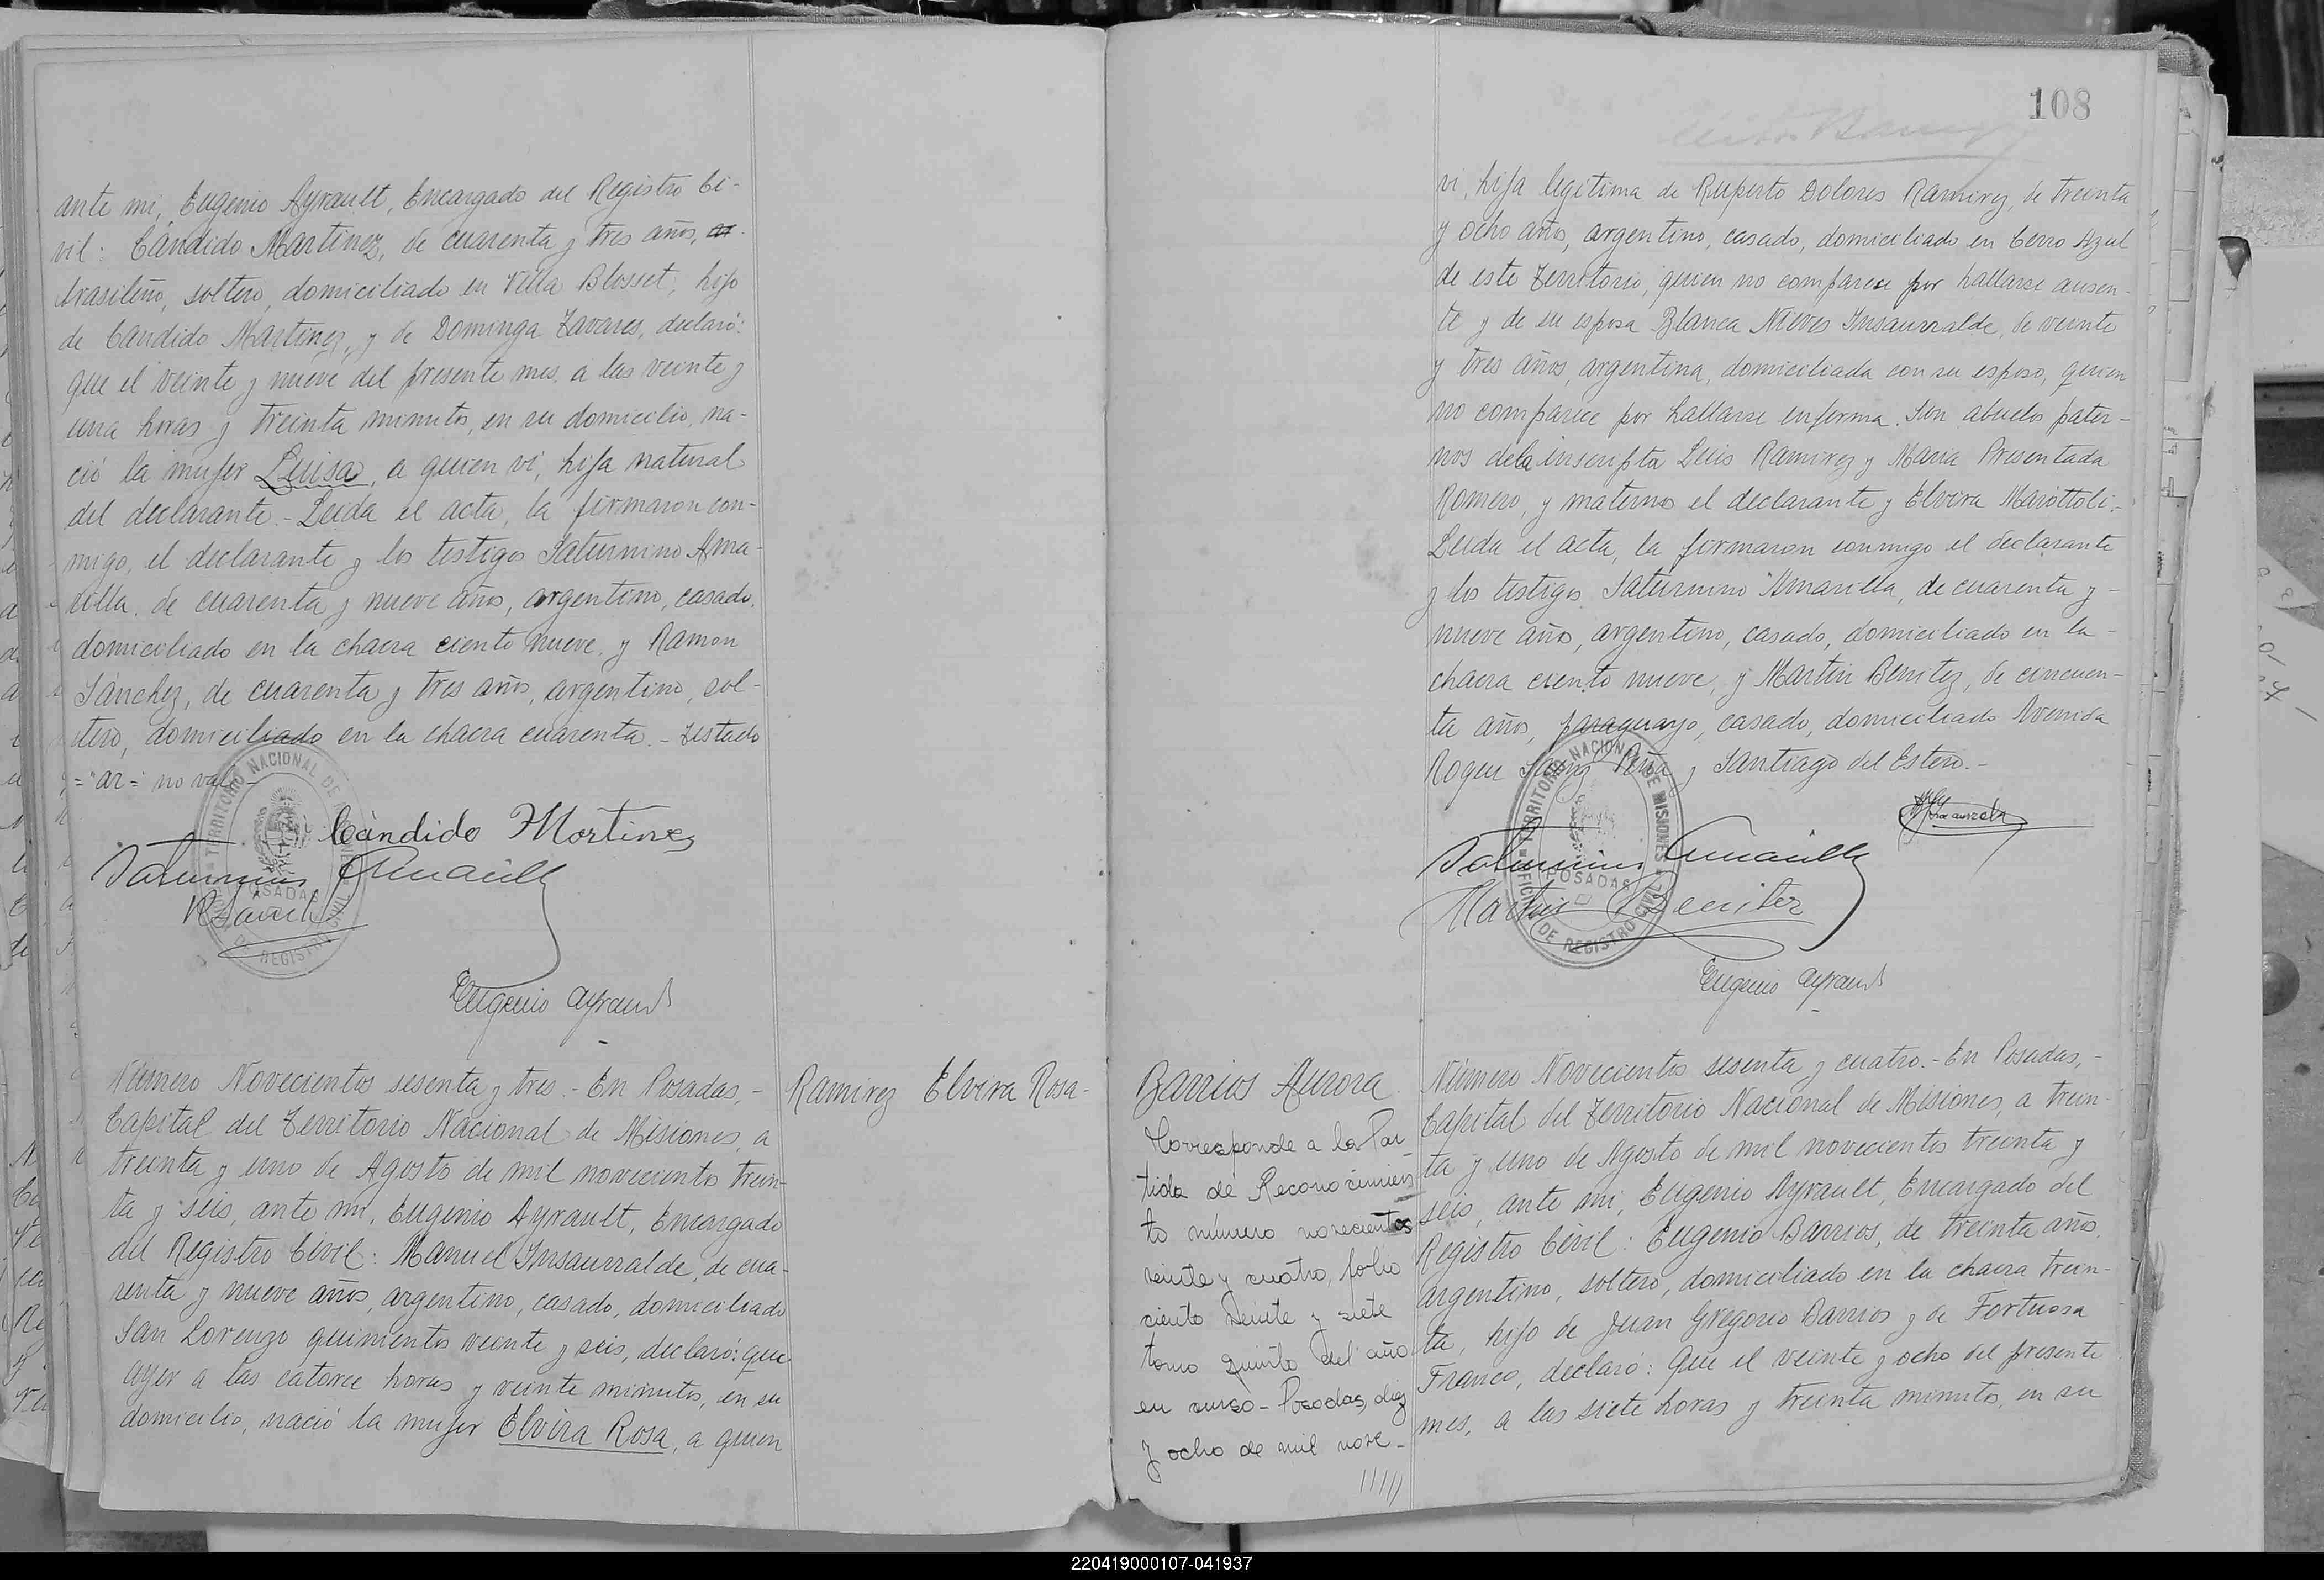 ante mi, Eugenio Ayrault, Encargado del Registro Ci-
vil: Cándido Martinez, de cuarenta y tres años, ar-
brasileño, soltero, domiciliado en Villa Blosset, hijo
de Candido Martinez, y de Dominga Tavares, declaró:
que el veinte y nueve del presente mes, a las veinte y
una horas y treinta minutos, en su domicilio, na-
ció la mujer Luisa, a quien vi, hija natural
del declarante.- Leida el acta, la firmaron con-
migo, el declarante y los testigos Saturnino Ama-
rilla, de cuarenta y nueve años, argentino, casado,
domiciliado en la chacra ciento nueve, y Ramon
Sánchez, de cuarenta y tres años, argentino, sol-
tero, domiciliado en la chacra cuarenta.- Testado
="ar= no vale-
TERRITORIO NACIONAL DE MISIONES
POSADAS
OFICINA DE REGISTRO CIVIL
Cándido Martinez
Saturnino Amarilla
RSanchez
Eugenio Ayrault
Número Novecientos sesenta y tres.- En Posadas,-
Capital del Territorio Nacional de Misiones, a
treinta y uno de Agosto de mil novecientos trein-
ta y seis, ante mi, Eugenio Ayrault, Encargado
del Registro Civil: Manuel Insaurralde, de cua-
renta y nueve años, argentino, casado, domiciliado
San Lorenzo quinientos veinte y seis, declaró: que
ayer a las catorce horas y veinte minutos, en su
domicilio, nació la mujer Elvira Rosa, a quien
Ramirez Elvira Rosa-
108
vi, hija legitima de Ruperto Dolores Ramirez, de treinta
y ocho años, argentino, casado, domiciliado en Cerro Azul
de este Territorio, quien no comparece por hallarse ausen-
te y de su esposa Blanca Nieves Insaurralde, de veinte
y tres años, argentina, domiciliada con su esposo, quien
no comparece por hallarse enferma. Son abuelos pater-
nos dela inscripta Luis Ramirez y Maria Presentada
Romero, y maternos el declarante y Elvira Maróttoli.-
Leida el acta, la firmaron conmigo el declarante
y los testigos Saturnino Amarilla, de cuarenta y-
nueve años, argentino, casado, domiciliado en la-
chacra ciento nueve, y Martin Benitez, de cincuen-
ta años, paraguayo, casado, domiciliado Avenida
Roque Saenz Peña y Santiago del Estero.-
TERRITORIO NACIONAL DE MISIONES
POSADAS
OFICINA DE REGISTRO CIVIL
MInsaurralde
Saturnino Amarilla
Martin Benitez
Eugenio Ayrault
Barrios Aurora
Corresponde a la Par-
tida de Reconocimien-
to número novecientos
veinte y cuatro, folio
ciento veinte y siete
tomo quinto del año
en curso- Posadas, diez
y ocho de mil nove-
/////
Número Novecientos sesenta y cuatro.- En Posadas,-
Capital del Territorio Nacional de Misiones, a trein-
ta y uno de Agosto de mil novecientos treinta y
seis, ante mi, Eugenio Ayrault, Encargado del
Registro Civil: Eugenio Barrios, de treinta años,
argentino, soltero, domiciliado en la chacra trein-
ta, hijo de Juan Gregorio Barrios y de Fortuosa
Franco, declaró: Que el veinte y ocho del presente
mes, a las siete horas y treinta minutos, en su
220419000107-041937